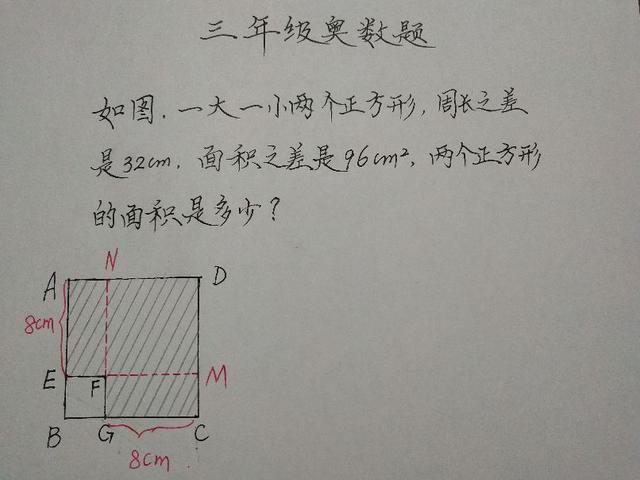 三年级奥数题
如图,一大一小两个正方形,周长之差
是32cm,面积之差是96cm²,两个正方形
的面积是多少?
N
A D
8cm
E F M
B G C
8cm